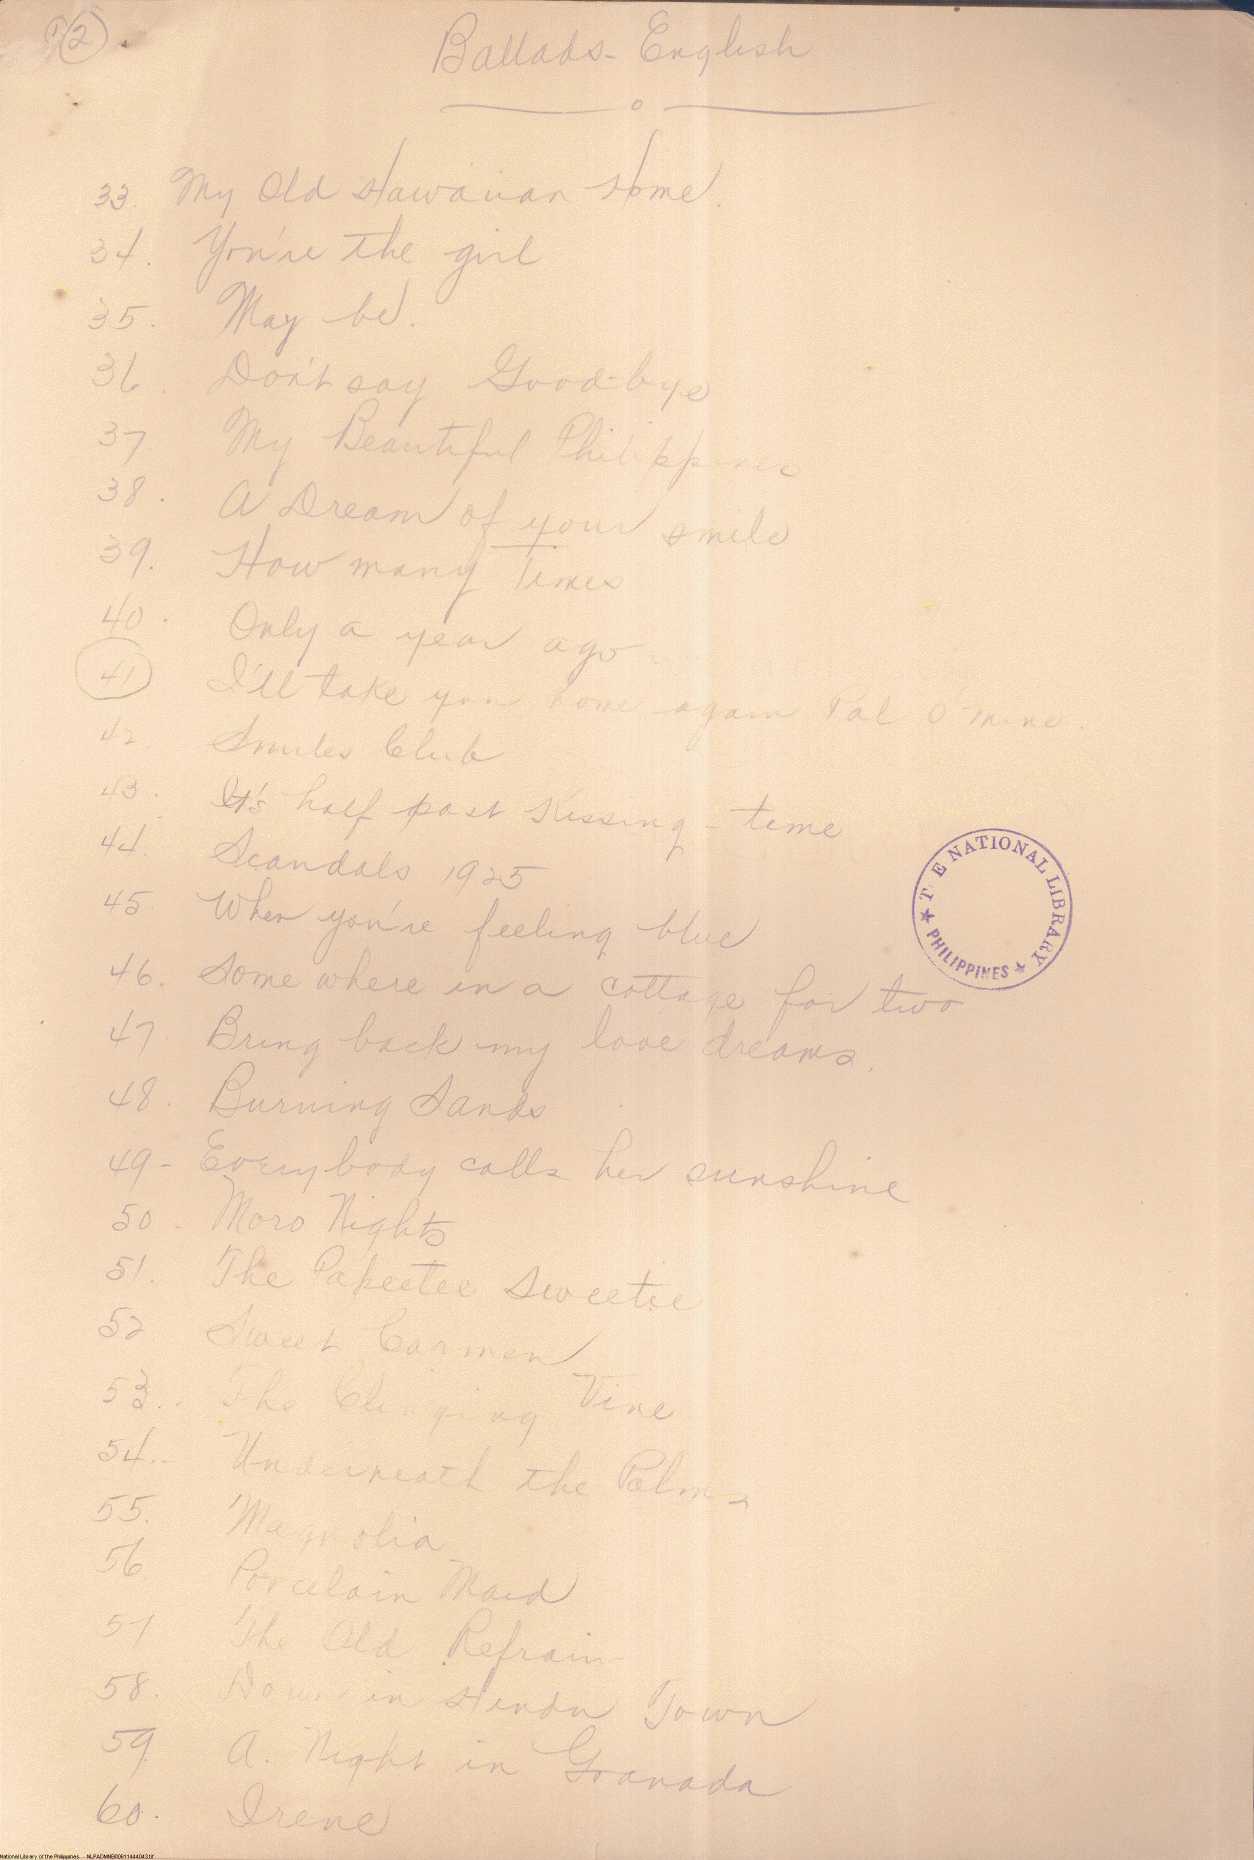 2
Ballads - English
33. My Old Hawaiian Home.
34. You're the girl
35. May be.
36. Don't say Good-bye
37 My Beautiful Philippines
38. A Dream of your smile
39. How many Times
40. Only a year ago
41 I'll take you home again Pal O'mine.
42 Smiles Club
43. It's half past Kissing - time
44. Scandals 1925
45 When you're feeling blue
46. Some where in a cottage for two
47 Bring back my love dreams.
48. Burning Sands
49 - Everybody calls her sunshine
50 - Moro Nights
51. The Papeetee Sweetie
52 Sweet Carmen
53.. The Clinging Vine
54.. Underneath the Palms
55. Magnolia
56 Porcelain Maid
57 The Old Refrain
58. Down in Hindu Town
59. A. Night in Granada
60. Irene
THE NATIONAL LIBRARY
PHILIPPINES
National Library of the Philippines